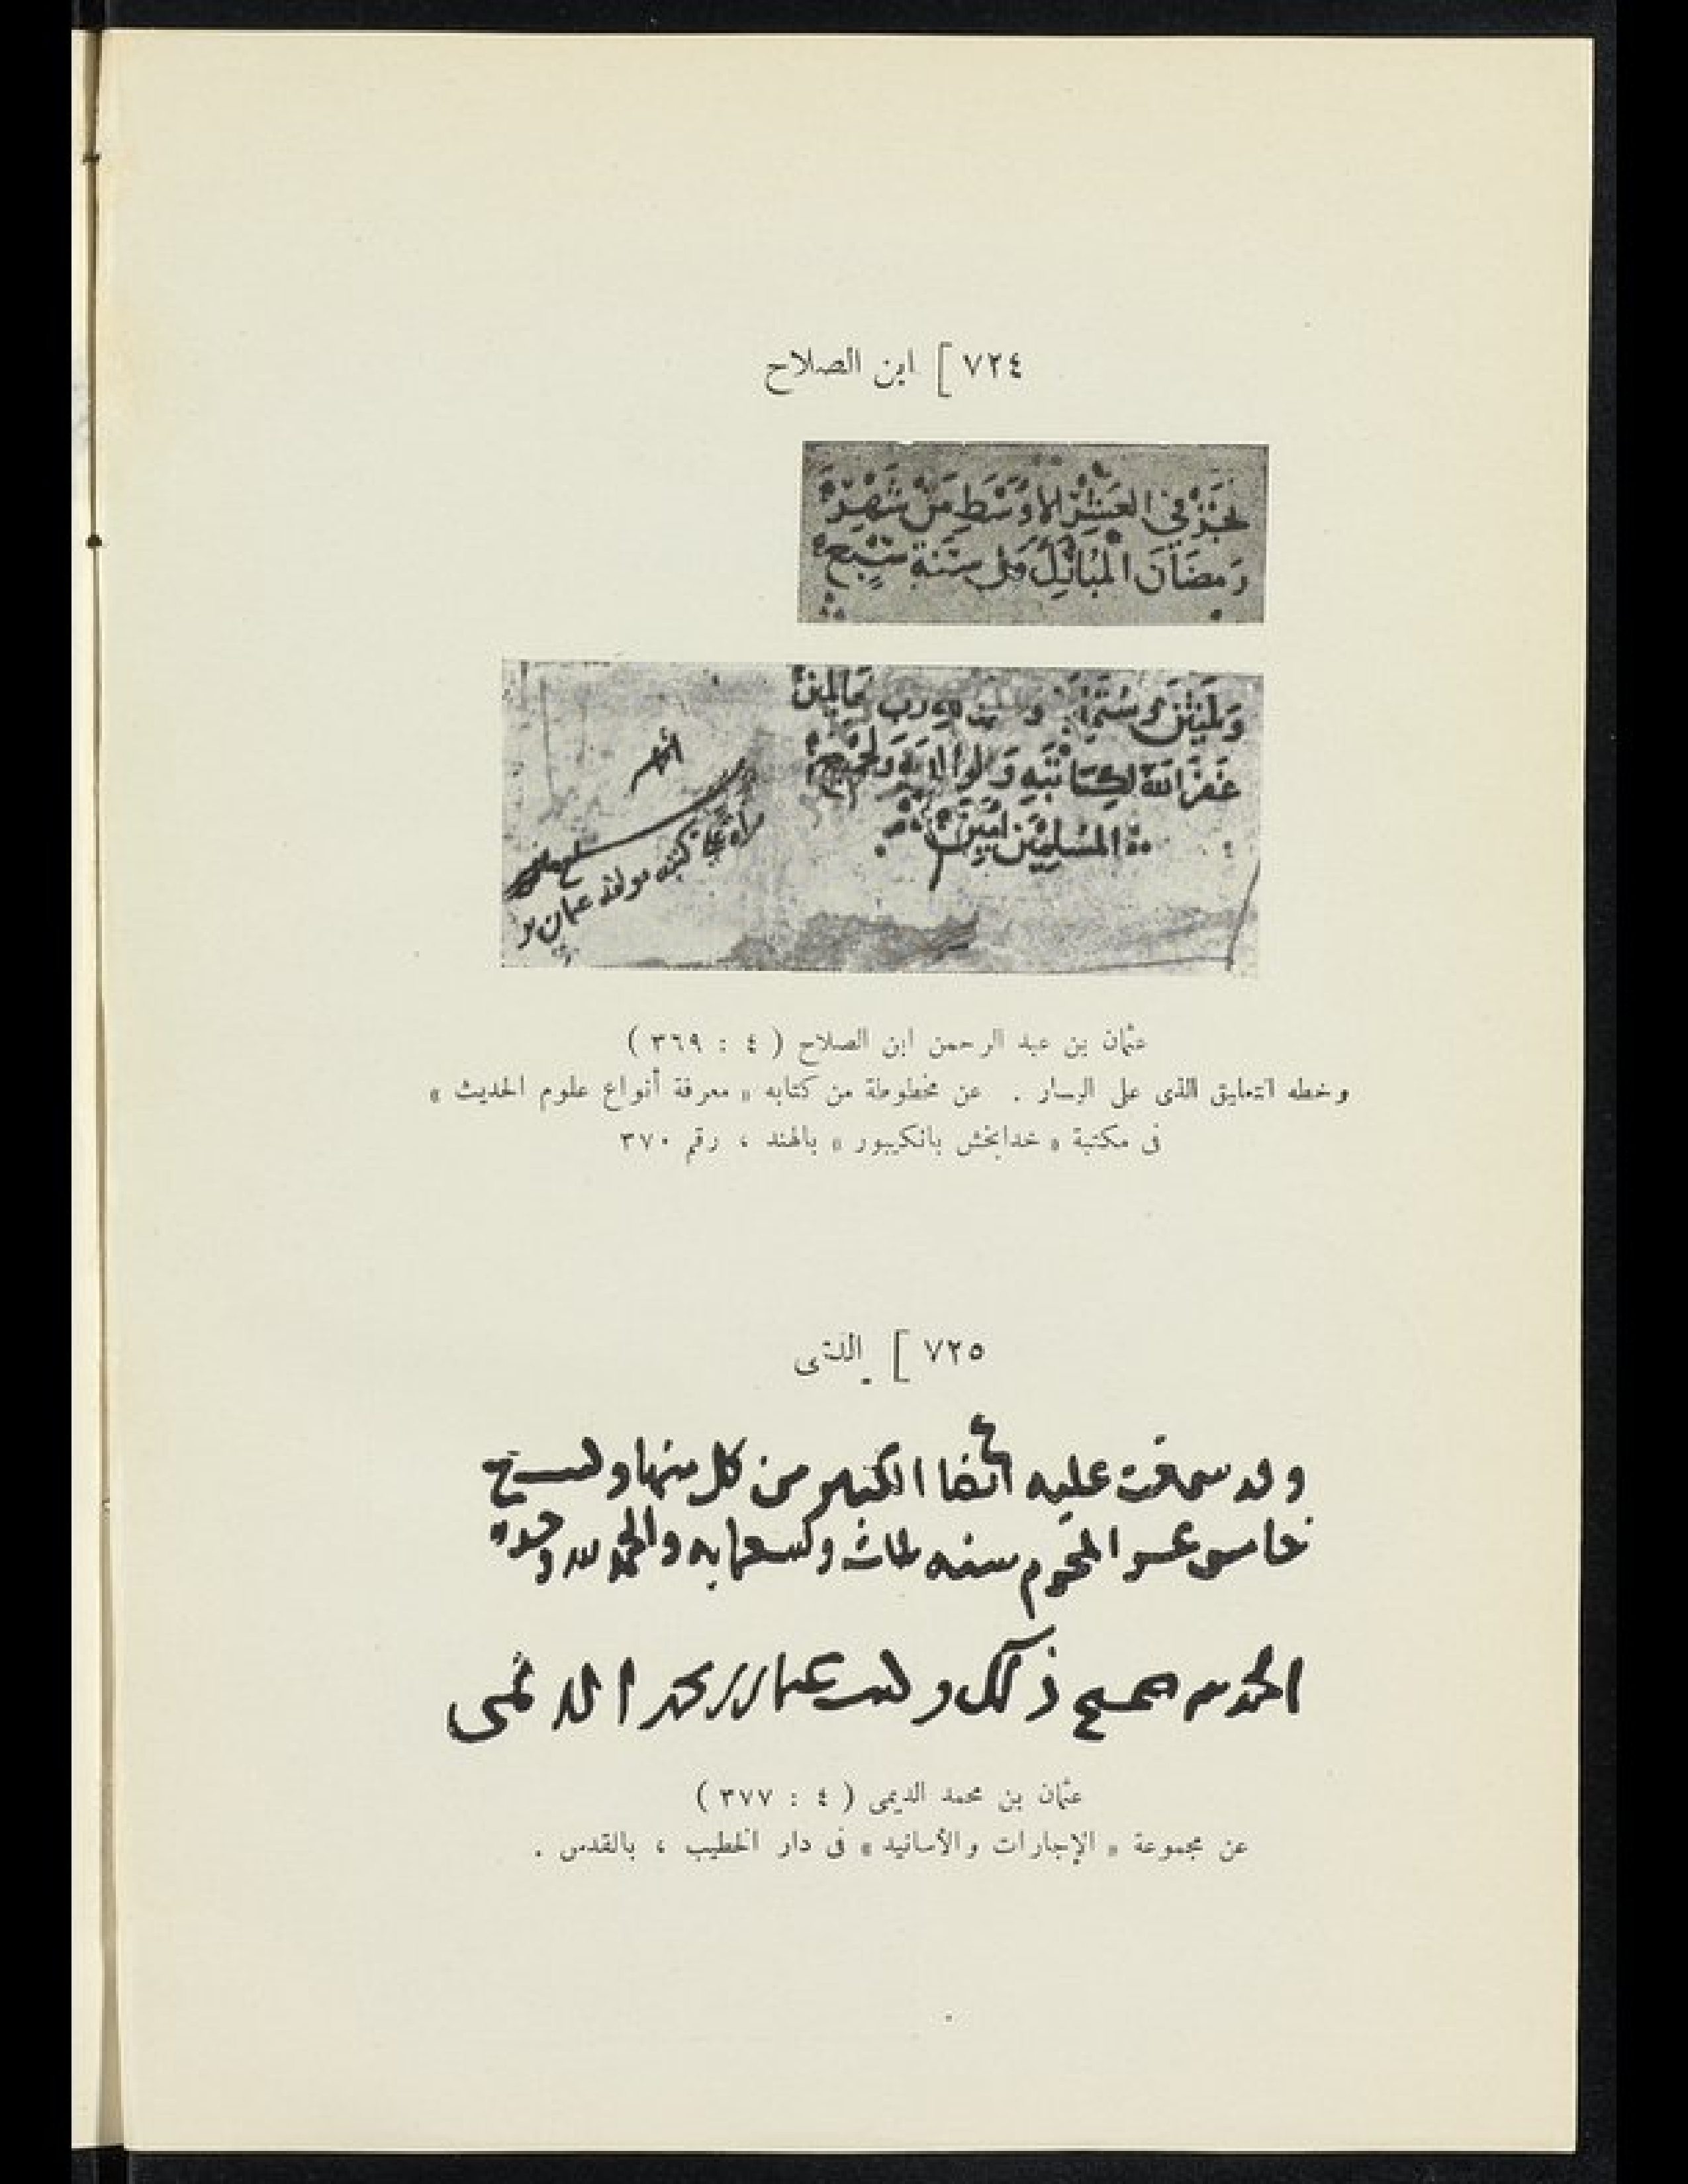 ٧٢٤ [ ابن الصلاح
نجز في العَشر الأوسَط من شَهر
رمضان المبارك من سنة سبع
وثلثين وستمئة و رب العالمين
غفر الله لكاتبه ولوالديه ولجميع
المسلمين آمين
عثمان بن عبد الرحمن ابن الصلاح ( ٤ : ٣٦٩ )
وخطه التعليق الذى على اليسار . عن مخطوطة من كتابه « معرفة أنواع علوم الحديث »
فى مكتبة « خدابخش بانكيبور » بالهند ، رقم ٣٧٠
٧٢٥ ] الديمى
وقد سمعت عليه أيضا الكثير من كل منهما
خامس عشر المحرم سنه ثلاث وتسعمايه والحمد لله وحده
الحمد لله صحيح ذلك وكتب عثمان بن محمد الديمى
عثمان بن محمد الديمى ( ٤ : ٣٧٧ )
عن مجموعة « الإجازات والأسانيد » فى دار الخطيب ، بالقدس .